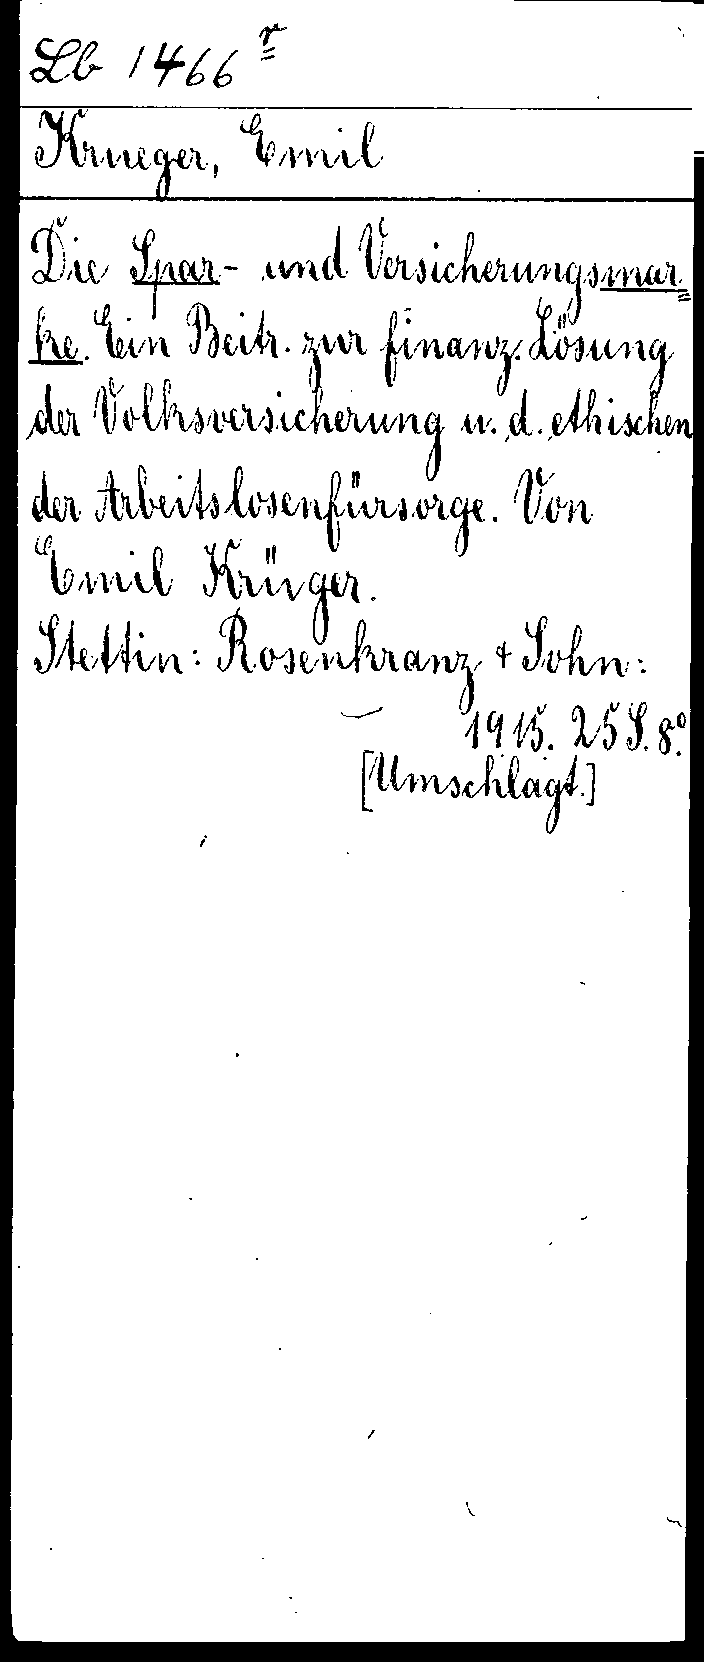 Lb 1466 r
Krueger, Emil
Die Spar- und Versicherungsmar=
ke. Ein Beitr. zur finanz. Lösung
der Volksversicherung u. d. ethischen
der Arbeitslosenfürsorge. Von
Emil Krüger.
Stettin: Rosenkranz + Sohn:
1915. 25 S. 8°.
[Umschlagt.]